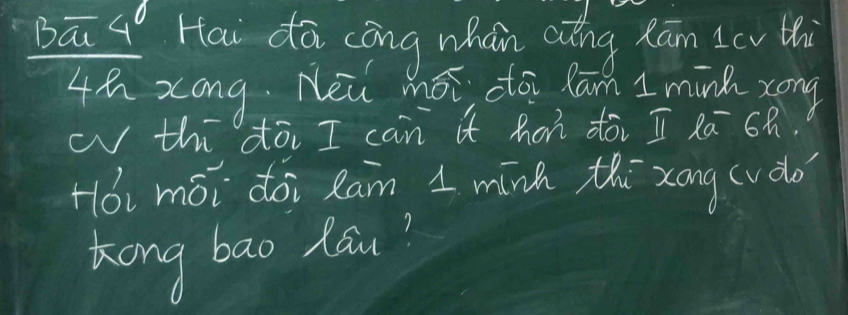 Bài 4: Hai đội công nhân cùng làm 1cv thì
4h xong. Nếu mỗi đội làm 1 mình xong
cv thì đội I cần ít hơn đội II là 6h.
Hỏi mỗi đội làm 1 mình thì xong cv đó
trong bao lâu?